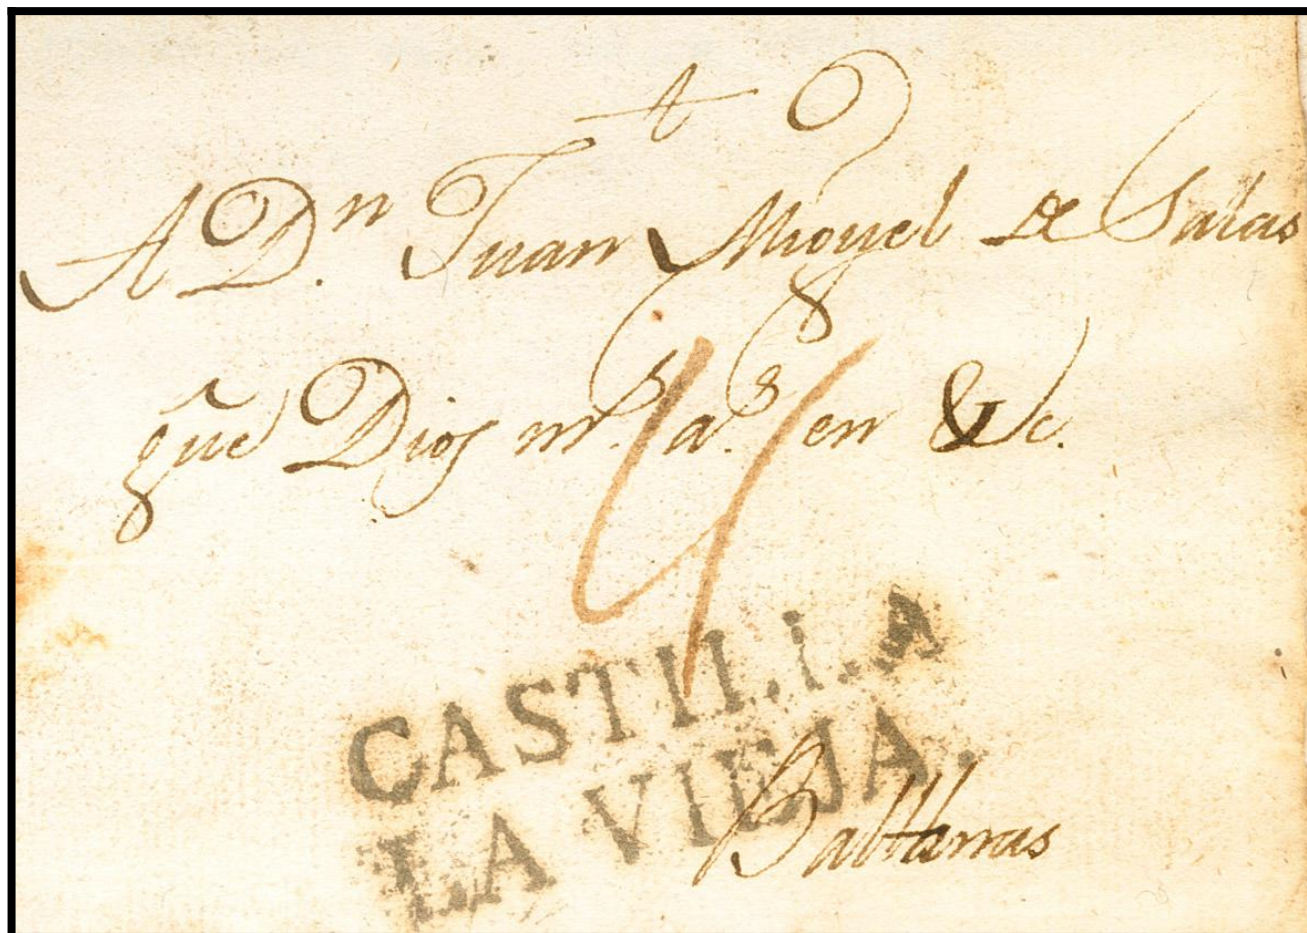 A Dn. Juan Miguel de Salas
gue Dios ms. as. en &c.
4
CASTILLA
LA VIEJA.
Balttanas